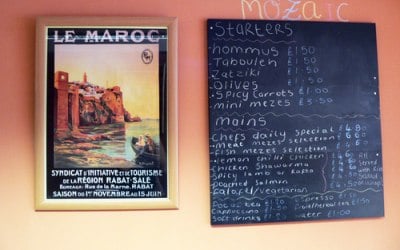 LE MAROC
SYNDICAT d'INITIATIVE et de TOURISME
de LA RÉGION RABAT-SALÉ
BUREAUX: Rue de la Marne, RABAT
SAISON du 1er NOVEMBRE au 15 JUIN
mozaic
Starters
hommus £1.50
Tabouleh £1.50
Zatziki £1.50
Olives £1.50
Spicy Carrots £1.50
mini mezes £3.50
Mains
Chefs daily special £4.80
meat mezes selection
Fish mezes selection
Lemon chilli chicken
Chicken Shawarma
Spicy lamb or Kofta
Poached Salmon
falafel/vegetarian
All
Served
with
Salad
Pot of tea
Cappuccino
Soft drinks
Espresso
water £1.00